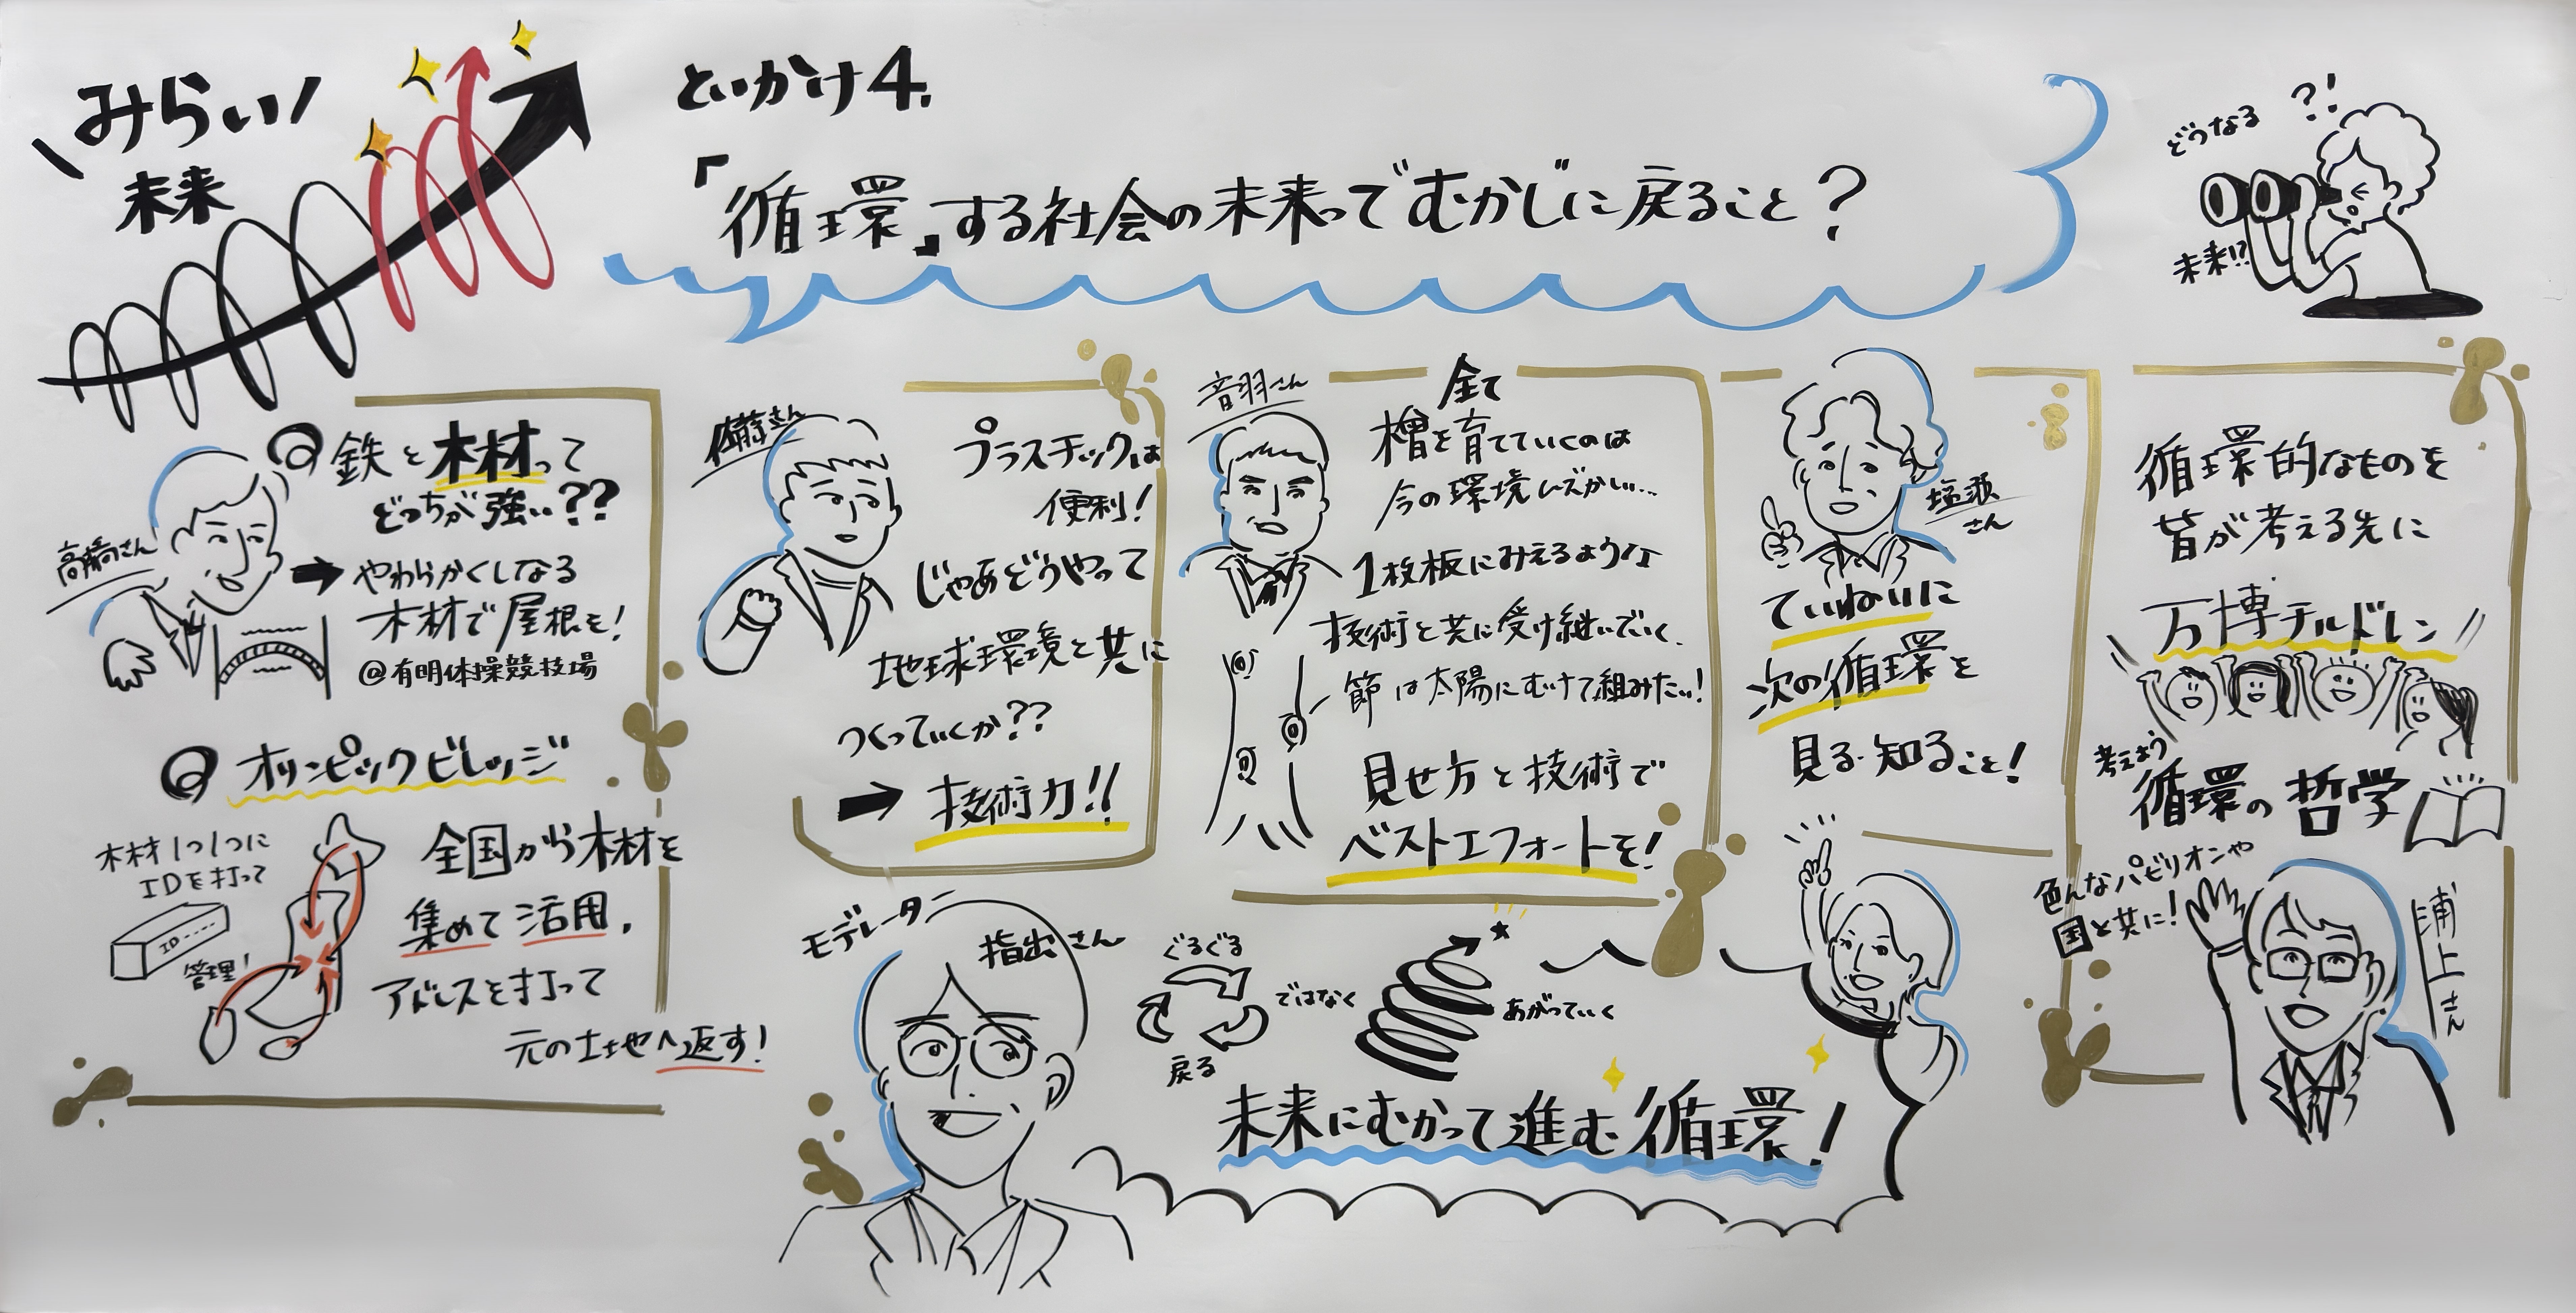 みらい
未来
といかけ4.
「循環」する社会の未来って"むかし"に戻ること?
どうなる ?!
未来!!
高橋さん
Q 鉄と木材って
どっちが強い??
→ やわらかくしなる
木材で屋根を!
@有明体操競技場
Q オリンピックビレッジ
木材1つ1つに
IDを打って
ID
管理!
全国から木材を
集めて活用.
アドレスを打って
元の土地へ返す!
佐藤さん
プラスチックは
便利!
じゃあどうやって
地球環境と共に
つくっていくか??
→ 技術力!!
音羽さん
全て
檜を育てていくのは
今の環境じゃ
1枚板にみえるような
技術と共に受け継いでいく.
節は太陽にむけて組みたい!
見せ方と技術で
ベストエフォートを!
塩瀬
さん
ていねいに
次の循環を
見る・知ること!
循環的なものを
皆が考える先に
万博チルドレン
考えよう
循環の哲学
色んなパビリオンや
国と共に!
浦上さん
モデレーター
指出さん
ぐるぐる
戻る
ではなく
あがっていく
未来にむかって進む循環!